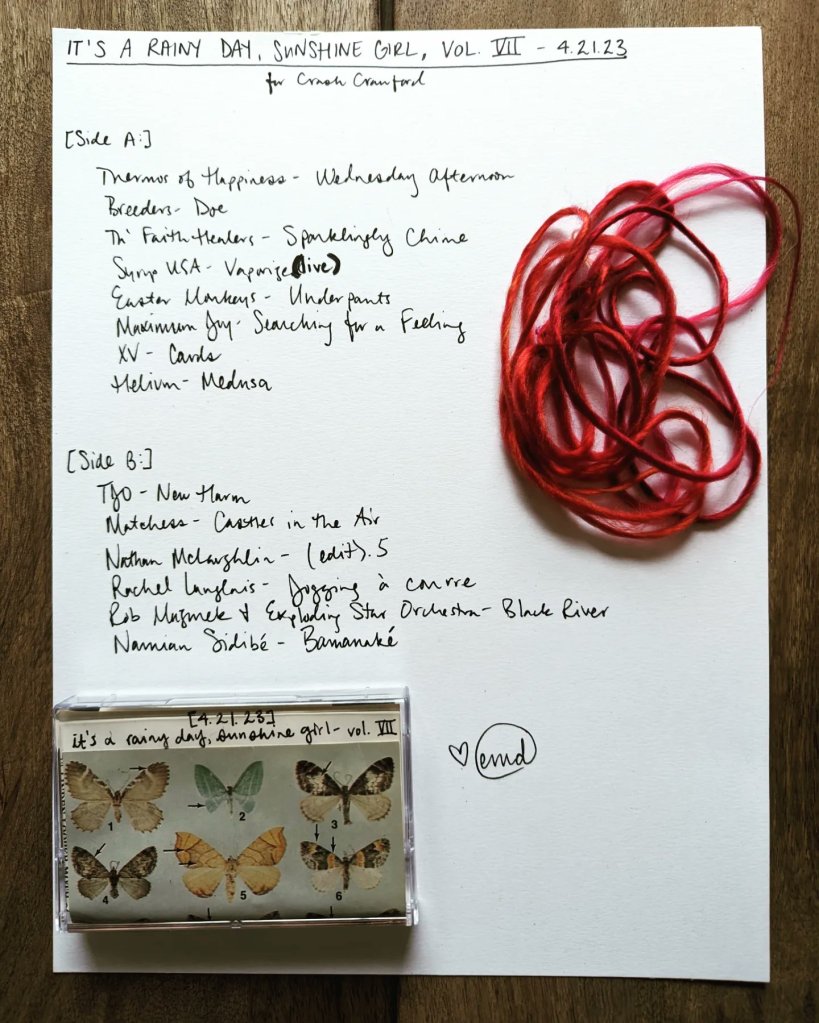 IT'S A RAINY DAY, SUNSHINE GIRL, VOL. VII - 4.21.23
for Crash Crawford
[Side A:]
Thermos of Happiness - Wednesday Afternoon
Breeders - Doe
Th' Faith Healers - Sparklingly Chime
Syrup USA - Vaporize (live)
Easter Monkeys - Underpants
Maximum Joy - Searching for a Feeling
XV - Cards
Helium - Medusa
[Side B:]
New Harm
Matchess - Castles in the Air
Nathan McLaughlin - (edit).5
Rachel Langlais - Jogging à courre
Rob Mazurek & Exploding Star Orchestra - Black River
Namian Sidibé - Bamanaké
[4.21.23]
it's a rainy day, sunshine girl - vol. VII
1
2
3
4
5
6
♡ emd